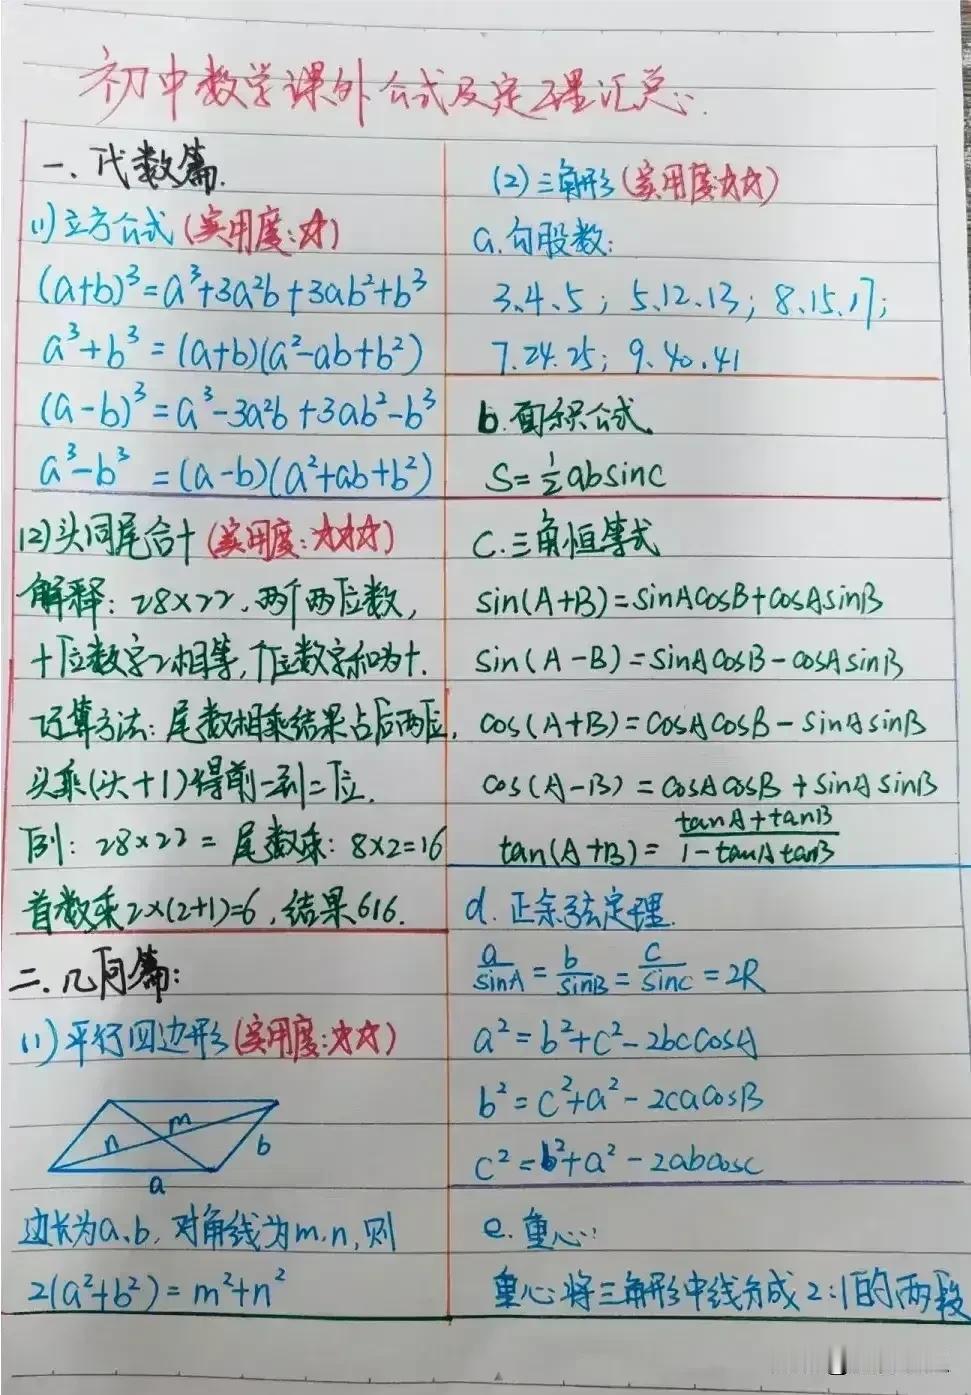 初中数学课外公式及定理汇总:
一、代数篇.
(1)立方公式(实用度:☆)
(a+b)³=a³+3a²b+3ab²+b³
a³+b³=(a+b)(a²-ab+b²)
(a-b)³=a³-3a²b+3ab²-b³
a³-b³=(a-b)(a²+ab+b²)
(2)头同尾合十(实用度:☆☆☆)
解释:28×22,两个两位数,
十位数字2相等,个位数字和为十.
运算方法:尾数相乘结果占后两位,
头乘(头+1)得前一到二位.
例:28×22=尾数乘:8×2=16
首数乘2×(2+1)=6,结果616.
二、几何篇:
(1)平行四边形(实用度:☆☆)
n
m
b
a
边长为a、b,对角线为m,n,则
2(a²+b²)=m²+n²
(2)三角形(实用度:☆☆)
a.勾股数:
3.4.5; 5.12.13; 8.15.17;
7.24.25; 9.40.41
b.面积公式
S=½absinC
C.三角恒等式
sin(A+B)=sinAcosB+cosAsinB
sin(A-B)=sinAcosB-cosAsinB
cos(A+B)=cosAcosB-sinAsinB
cos(A-B)=cosAcosB+sinAsinB
tan(A+B)=(tanA+tanB)/(1-tanAtanB)
d.正余弦定理.
a/sinA=b/sinB=c/sinC=2R
a²=b²+c²-2bccosA
b²=c²+a²-2cacosB
c²=b²+a²-2abcosc
e.重心:
重心将三角形中线分成2:1的两段